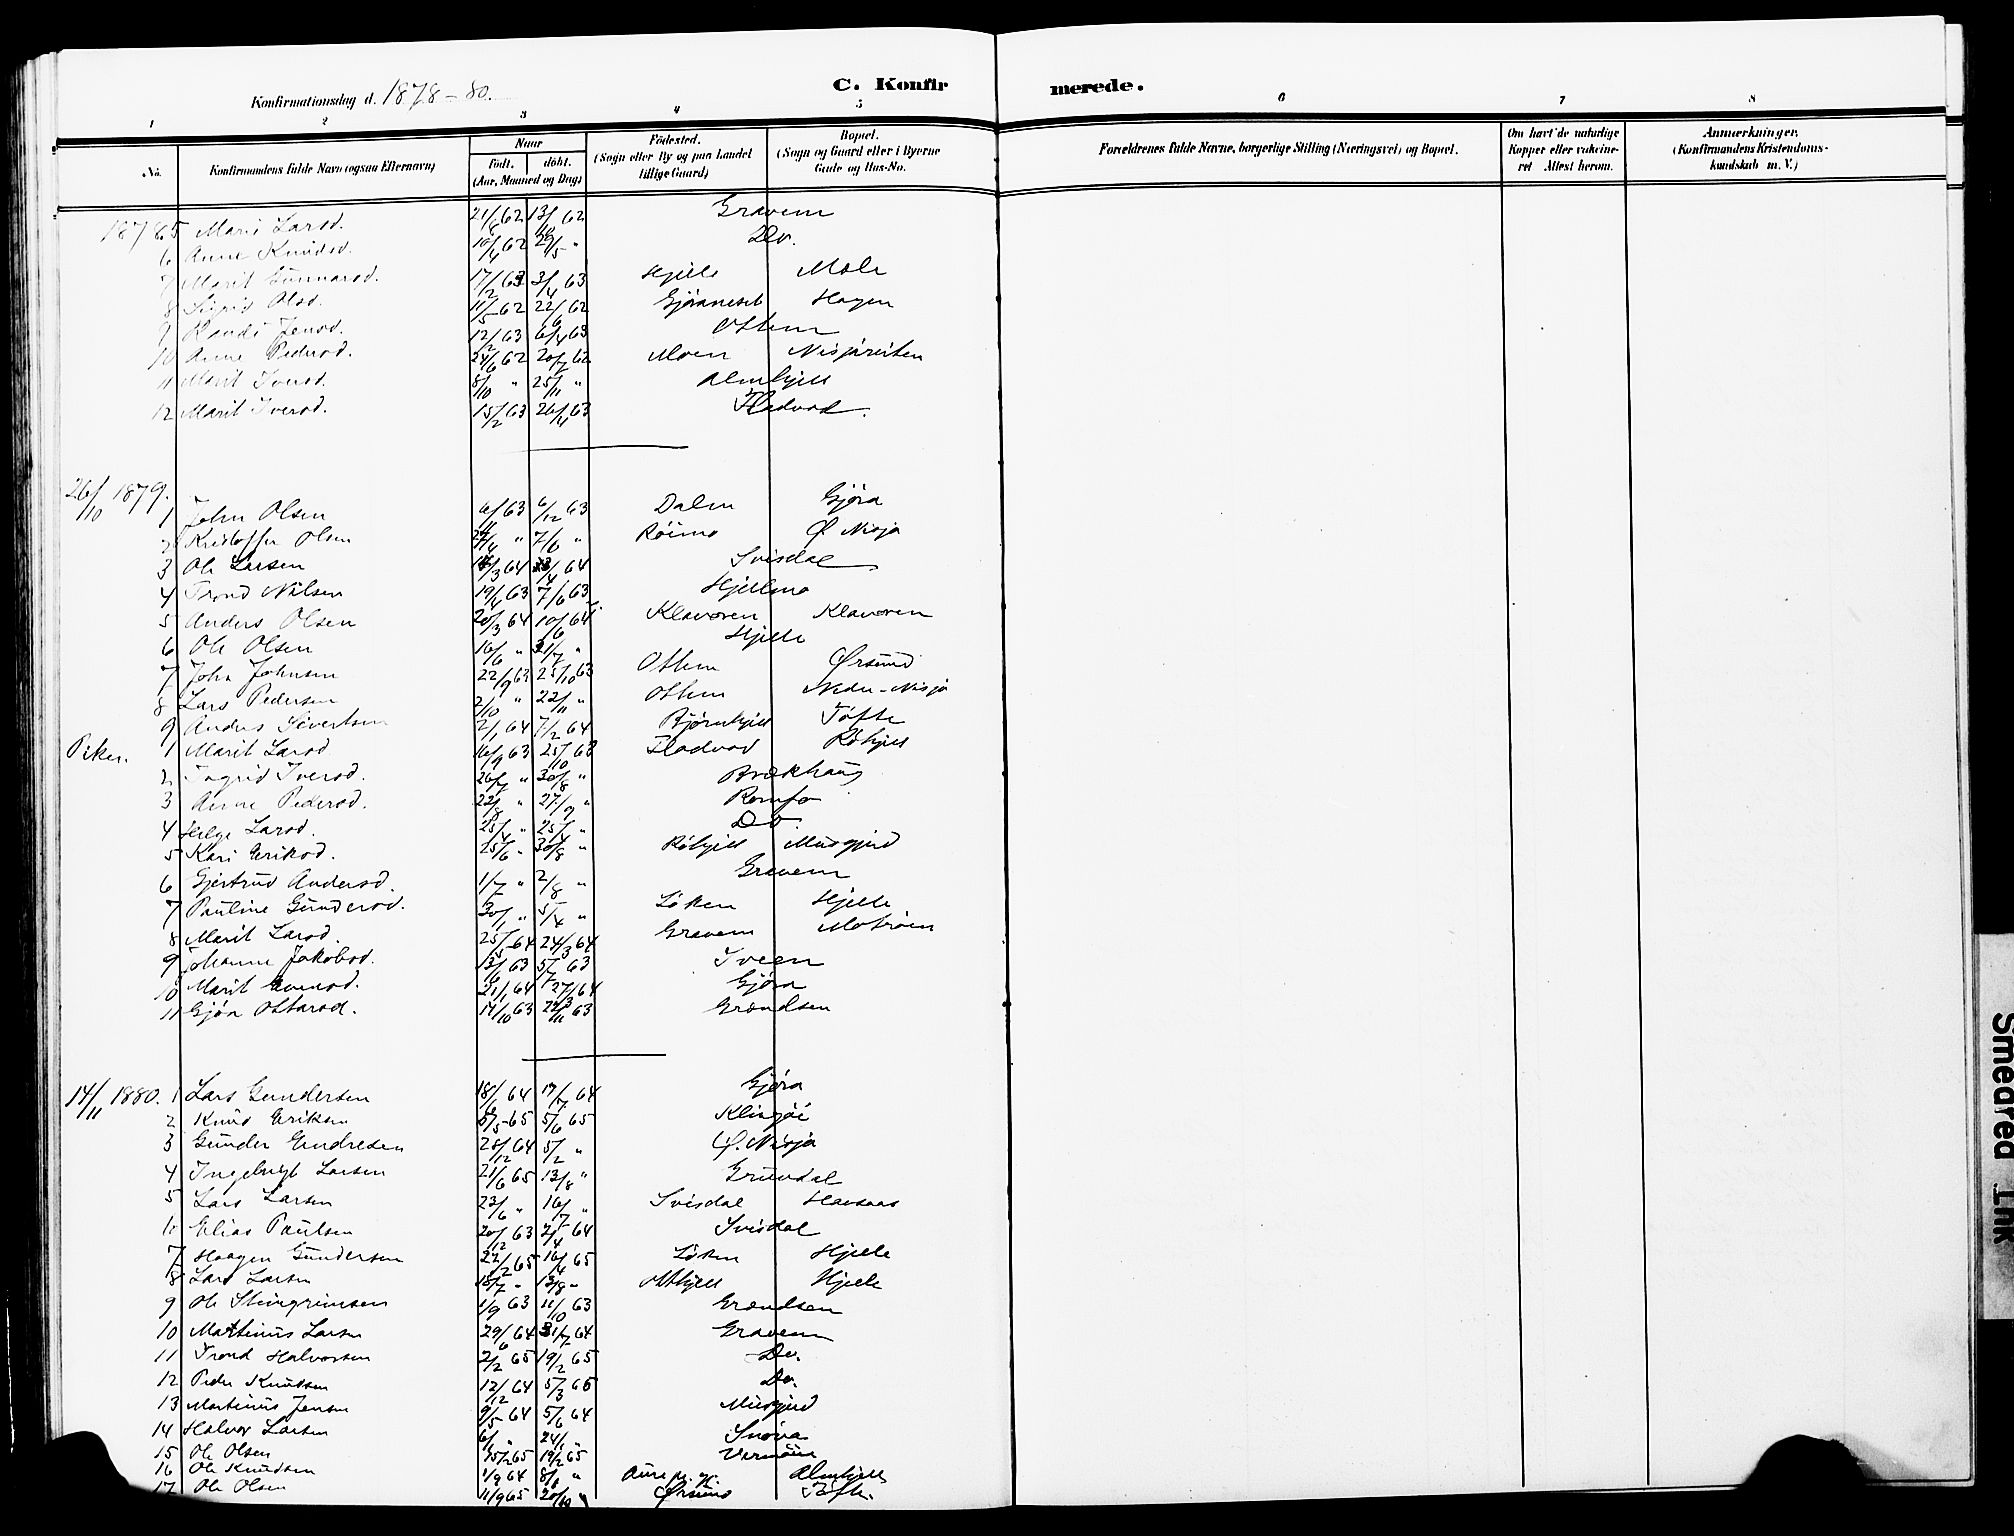 Konfirmationsdag d. 1878-80. C. Konfir merede.
1 2 3 4 5 6 7 8
No. Konfirmandens fulde Navn (ogsaa Efternavn) Naar født. døbt. (Aar, Maaned og Dag) Fødested. (Sogn eller By og paa Landet tillige Gaard) Bopæl. (Sogn og Gaard eller i Byerne Gade og Hus-No. Forældrenes fulde Navne, borgerlige Stilling (Næringsvei) og Bopæl. Om havt de naturlige Kopper eller vakcineret Attest herom. Anmærkninger. (Konfirmandens Kristendomskundskab m. V.)
1878. 5 Marit Larsd. 21/8 62 13/10 62 Gravem
6 Anne Knudsd. 10/4 62 29/5 " Do.
7 Marit Gunnarsd. 17/2 63 3/4 63 Hjelle Mæle
8 Sigrid Olsd. 11/5 62 22/6 62 Gjøraneset Hagen
9 Randi Jensd. 12/2 63 6/4 63 Ottem
10 Anne Pedersd. 24/6 62 20/7 62 Moen Nisjareiten
11 Marit Iversd. 8/10 " 25/11 " Almskjell
12 Marit Iversd. 15/2 63 26/4 63 Fladvad.
26/10 1879.
1 John Olsen 6/11 63 6/12 63 Dalen Gjøra
2 Kristoffer Olsen 24/4 " 7/6 " Røimo Ø. Nisja
3 Ole Larsen /3 64 /4 64 Svisdal
4 Trond Nilsen 19/4 63 7/6 63 Hjellmo
5 Anders Olsen 20/3 64 10/6 64 Klavoren Klavoren
6 Ole Olsen 16/6 " 31/7 " Hjelle
7 John Johnsen 22/9 63 25/10 63 Ottem Ørsund
8 Lars Pedersen 2/10 " 22/11 " Ottem Nedre-Nisja
9 Anders Sivertsen 2/1 64 7/2 64 Bjørnhjell Tofte
Piker. 1 Marit Larsd 16/9 63 25/10 63 Fladvad Røhjell
2 Ingrid Iversd. 26/7 " 30/8 " Brækhaug
3 Anne Pedersd. 22/8 " 27/9 " Romfo
4 Helge Larsd. 25/4 " 25/4 " Do
5 Kari Eriksd. 25/6 " 30/8 " Røhjell Musgjerd
6 Gjertrud Andersd. 1/7 " 2/8 " Gravem
7 Pauline Gundersd. 30/1 " 5/4 " Løken Hjelle
8 Marit Larsd. 25/1 64 24/3 64 Gravem Mostrøen
9 Johanne Jakobsd. 13/6 63 5/7 63 Iveen
10 Marit Evensd. 21/1 64 27/3 64 Gjøra
11 Gjøa Ottarsd. 14/10 63 22/11 63 Grændsen
14/11 1880. 1 Lars Gundersen 18/ 64 17/7 64 Gjøra
2 Knud Eriksen 8/5 65 5/6 65 Klingøi
3 Gunder Endresen 25/12 64 5/2 " Ø. Nisja
4 Ingebrigt Larsen 21/6 65 13/8 " Grøvdal
5 Lars Larsen 23/6 " 16/7 " Svisdal Haasaas
6 Elias Paulsen 20/12 63 2/4 64 Svisdal
7 Haagen Gundersen 22/2 65 16/4 65 Løken Hjelle
8 Lars Larsen 15/7 " 13/8 " Hjelle
9 Ole Steingrimsen 1/9 63 11/10 63 Grændsen
10 Martinus Larsen 29/6 64 31/7 64 Gravem
11 Trond Halvorsen 2/2 65 19/2 65 Do.
12 Peder Knudsen 12/12 64 5/3 65 Do.
13 Martinus Jensen 9/5 64 5/6 64 Musgjerd
14 Halvor Larsen 6/ " 24/ " Snøva
15 Ole Olsen 15/2 65 19/2 65 Vermøien
16 Ole Knudsen 1/9 64 8/ " Aure p. gj. Almskjell
17 Ole Olsen 11/9 65 20/10 " Ørsund Tofte.
Smeared Ink